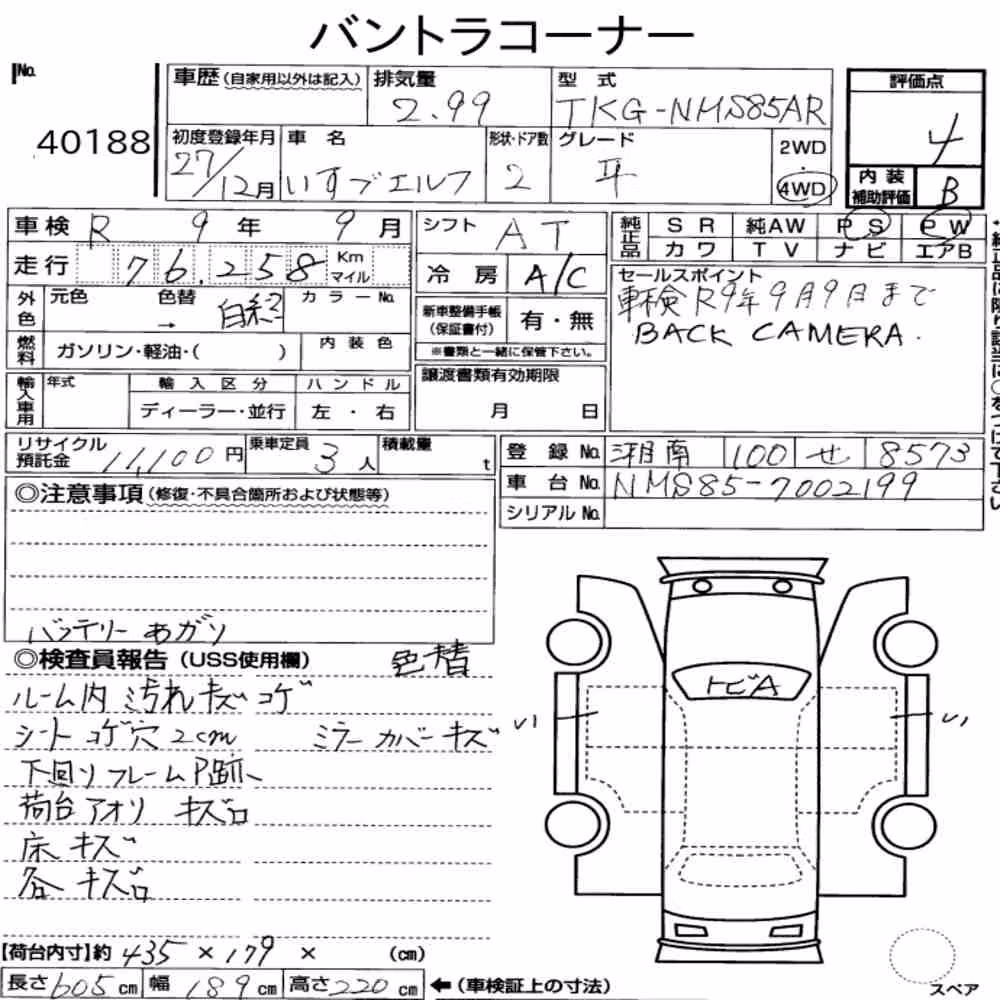 バントラコーナー
No.
40188
車歴 (自家用以外は記入)
排気量
2.99
型 式
TKG-NMS85AR
評価点
4
初度登録年月
27/12月
車 名
いすゞエルフ
形状・ドア数
2
グレード
平
2WD
・
4WD
内 装
補助評価
B
車検 R 9年 9月
走行 76,258 Km
マイル
シフト AT
冷 房 A/C
純正品
SR 純AW PS PW
カワ TV ナビ エアB
外色
元色 色替 → 白
カラーNo.
新車整備手帳
(保証書付)
有・無
※書類と一緒に保管下さい。
セールスポイント
車検R9年9月9日まで
BACK CAMERA.
燃料
ガソリン・軽油・( )
内 装 色
輸入車用
年式
輸 入 区 分
ディーラー・並行
ハ ン ド ル
左 ・ 右
譲渡書類有効期限
月 日
リサイクル
預託金
11,100円
乗車定員
3人
積載量
t
登 録 No. 湘南 100 せ 8573
車 台 No. NMS85-7002199
シリアル No.
◎注意事項 (修復・不具合箇所および状態等)
バッテリーあがり
◎検査員報告 (USS使用欄) 色替
ルーム内 汚れキズコゲ
シートコゲ穴2cm ミラーカバーキズ
下回りフレームP跡
荷台アオリ キズ凹
床キズ
各キズ凹
トビA
【荷台内寸】約 435 × 179 × (cm)
長さ 605 cm 幅 189 cm 高さ 220 cm ←(車検証上の寸法)
スペア